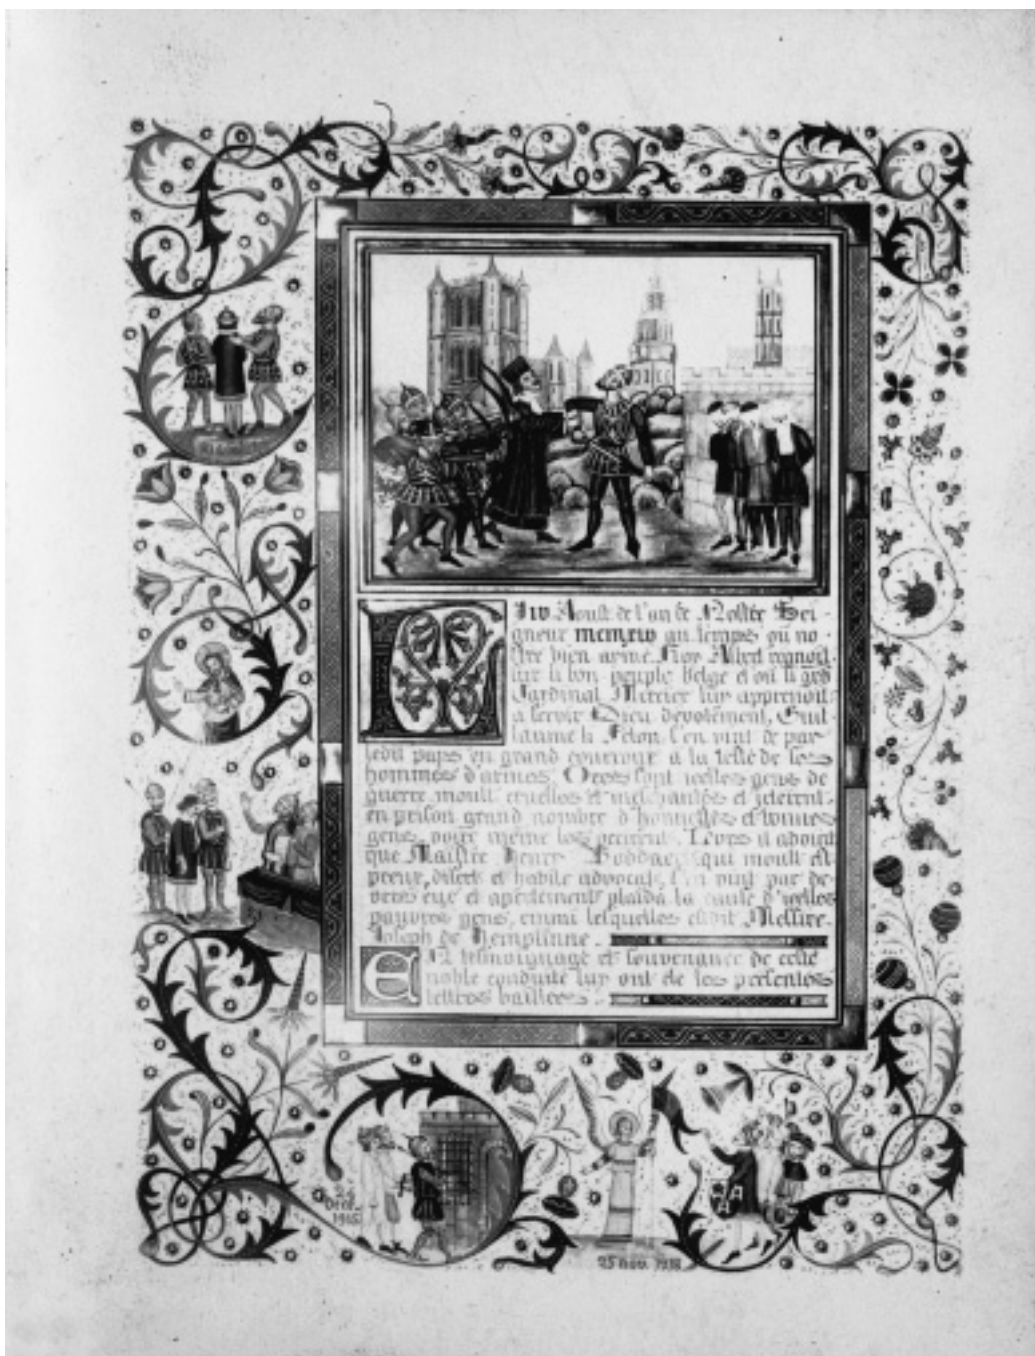 Aoust de l'an de Nostre Sei-
gneur mcmxiv au temps où no-
stre bien aimé Roy Albert regnoit
sur li bon peuple belge et où li grd
Cardinal Mercier luy apprenoit
a servir Dieu devotement, Guil-
laume li Felon s'en vint de par
ledit pays en grand couroux a la teste de ses
hommes d'armes. Ores sont icelles gens de
guerre moult cruelles et meschantes et jeterent
en prison grand nombre d'honnestes et bonnes
gens, voire même les occirent. Lors il advint
que Maistre Henry qui moult est
preux, disert et habile advocat, s'en vint par de-
vers eux et apertement plaida la cause d'icelles
pauvres gens, emmi lesquelles estoit Messire
Joseph de Hemptinne.
En tesmoignage et souvenance de ceste
noble conduite luy ont été les presentes
lettres baillées.
Déc.
1915
25 nov. 1918